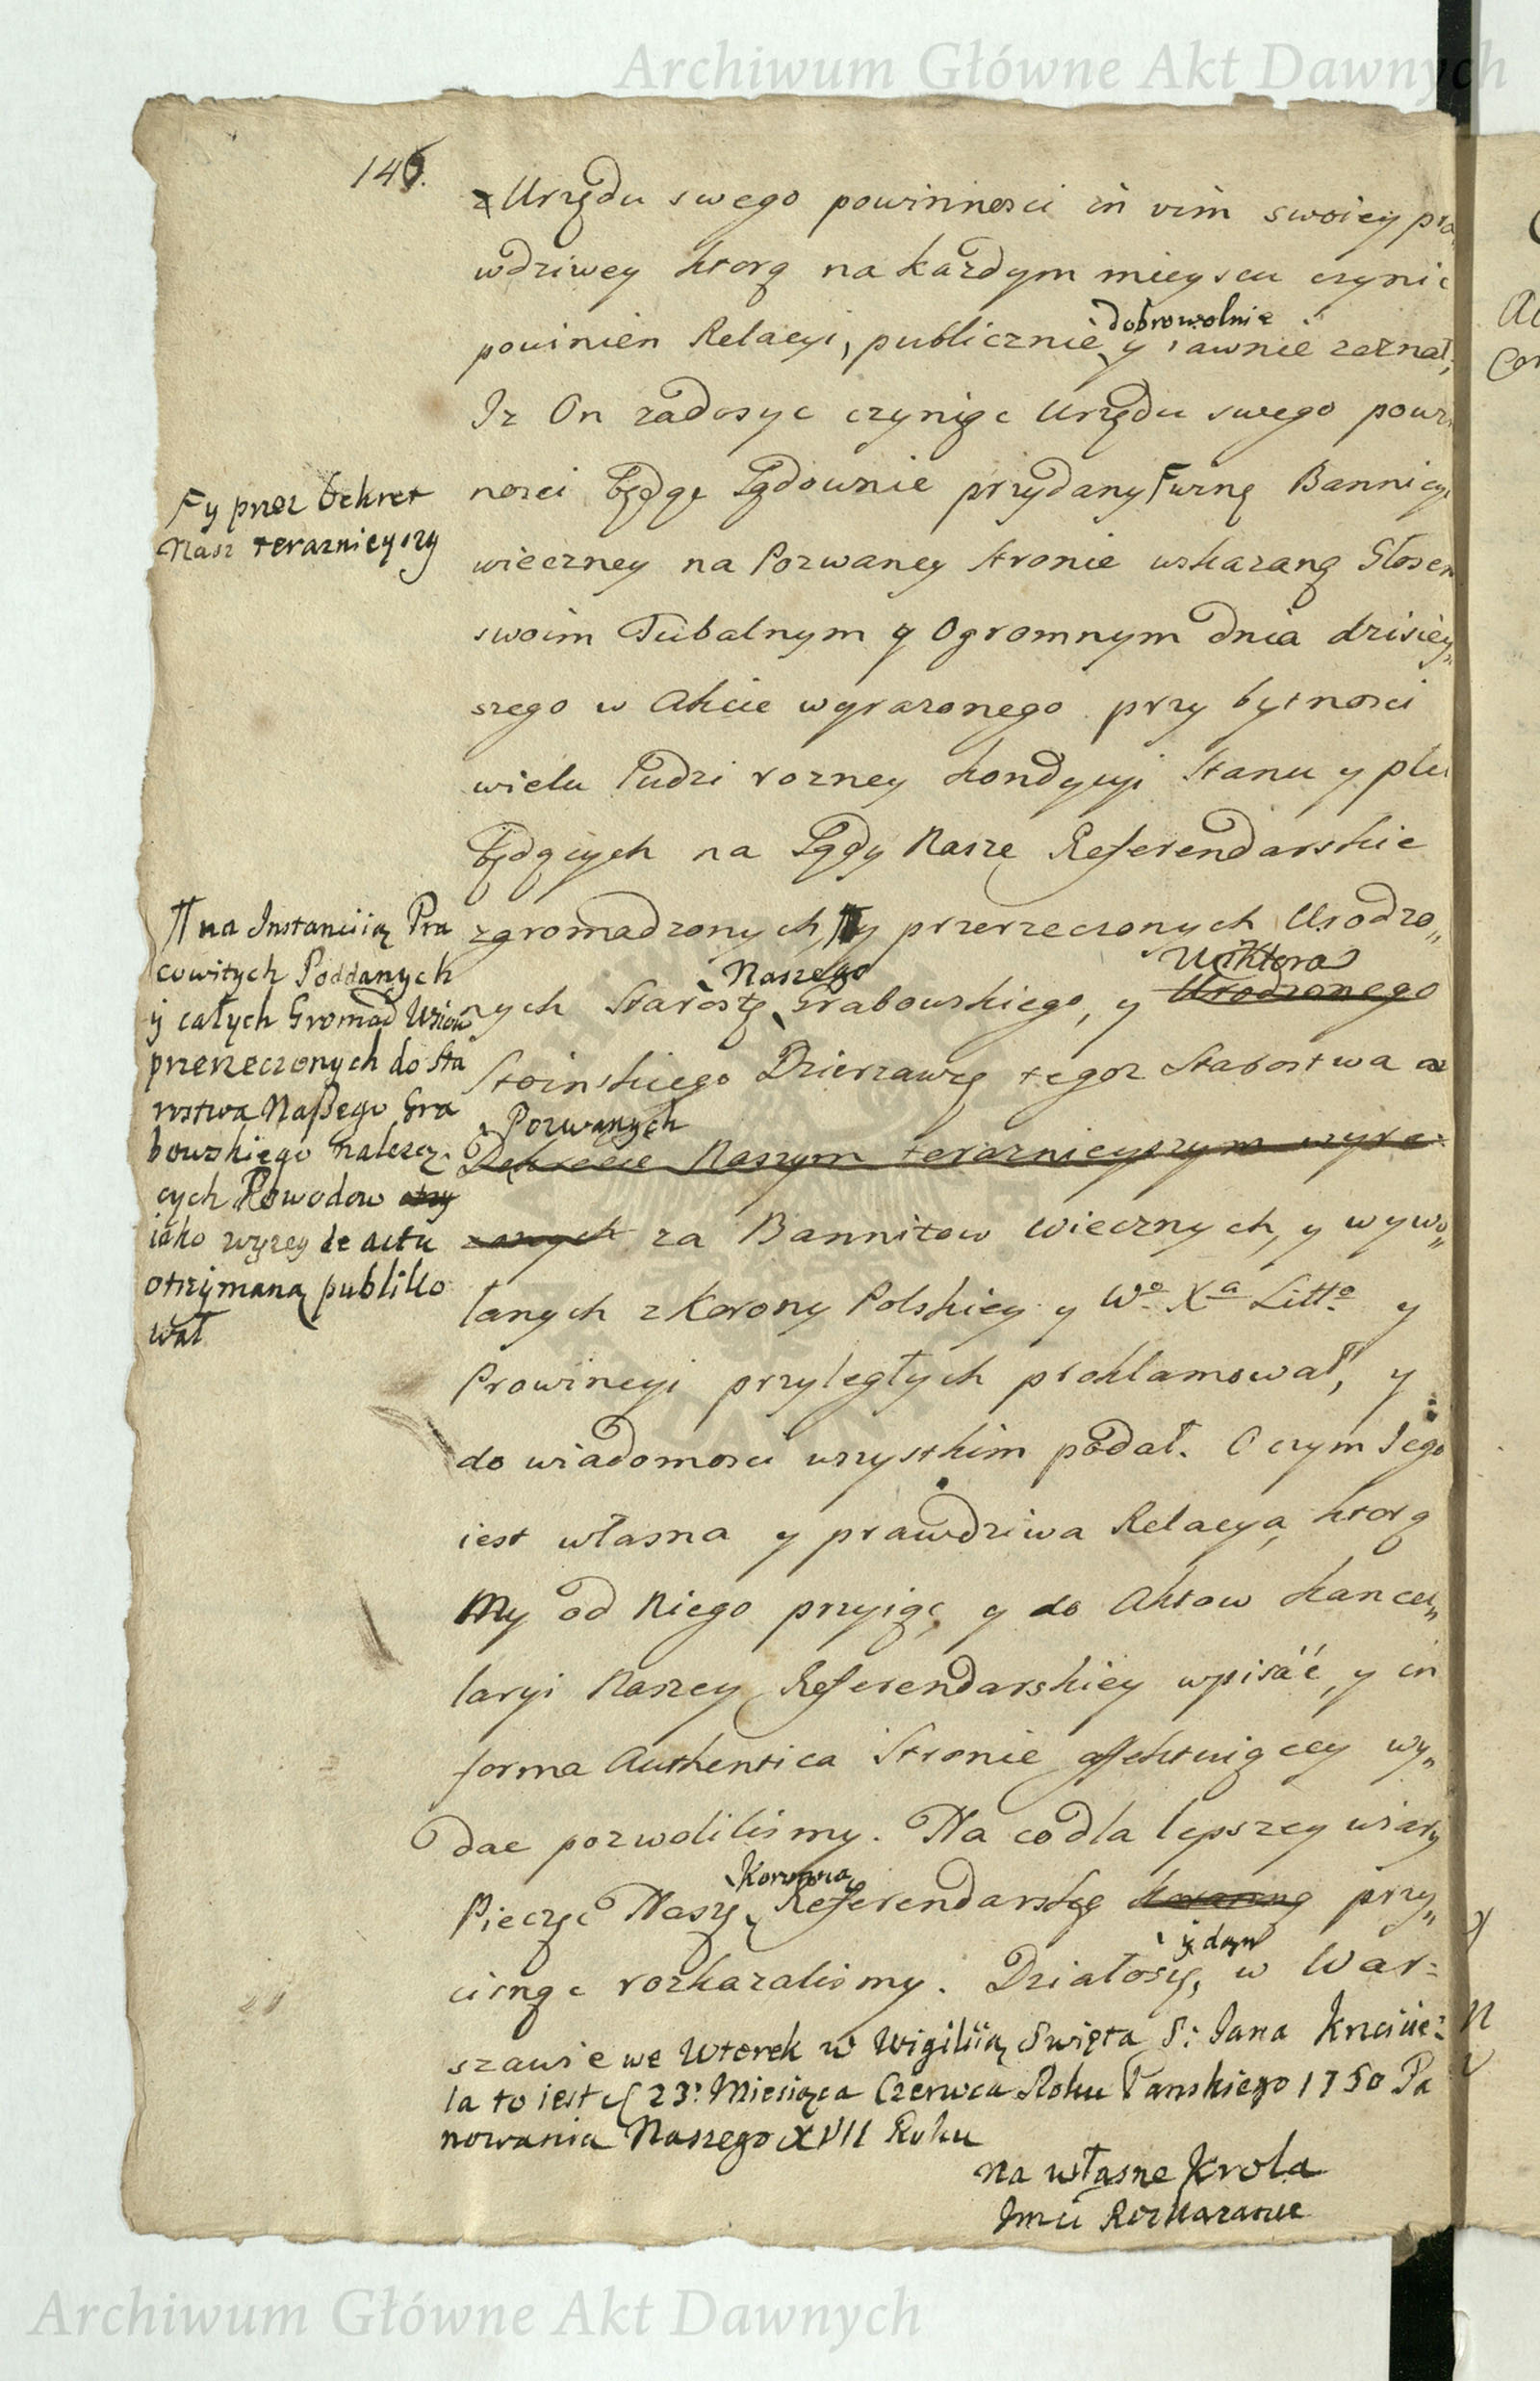 Archiwum Główne Akt Dawnych
146.
z Urzędu swego powinnosci in vim swoiey pra
wdziwey ktorą na każdym mieyscu czynic
powinien Relacyi, publicznie dobrowolnie y iawnie zeznał,
Iz On zadosyc czyniąc Urzędu swego powin
nosci będąc Sądownie przydany winę Bannicyi
Ꞙ y przez Dekret
Nasz teraznieyszy
wieczney na Pozwaney stronie wskazaną Głosem
swoim Tubalnym y Ogromnym dnia dzisiey„
szego w Akcie wyrazonego przy bytnosci
wielu ludzi rozney kondycyi stanu y płci
będących na Sądy Nasze Referendarskie
zgromadzonych, y przerzeczonych Urodzo„
nych Starostę Naszego Grabowskiego, y Urodzonego Wiktora
Stoinskiego Dzierzawcę tegoz Starostwa
Pozwanych
Dekrecie Naszym teraznieyszym wyra„
zonych za Bannitow wiecznych, y wywo„
łanych z Korony Polskiey y Wo Xa Litto y
Prowincyi przyległych proklamował, y
do wiadomosci wszystkim podał. O czym Jego
iest własna y prawdziwa Relacya, ktorą
My od Niego przyiąc, y do Aktow Kancel„
laryi Naszey Referendarskiey wpisać, y in
forma Authentica Stronie affektuiącey wy„
dac pozwolilismy. Na co dla lepszey wiary
Pieczęc Naszą Koronną Referendarską przy„
cisnąc rozkazalismy. Działosię, w War:
szawie we Wtorek w Wigiliią Swięta S: Jana Krzcicie:
la to iest d 23: Miesiąca Czerwca Roku Panskiego 1750 Pa
nowania Naszego XVII Roku
Na własne Krola
Jmci Rozkazanie
∏ na Instanciią Pra
cowitych Poddanych
y całych Gromad Wsiow
przerzeczonych do Sta
rostwa Naszego Gra
bowskiego nalezą
cych Powodow
iako wyzey de actu
otrzymaną publiko
wał
Archiwum Główne Akt Dawnych